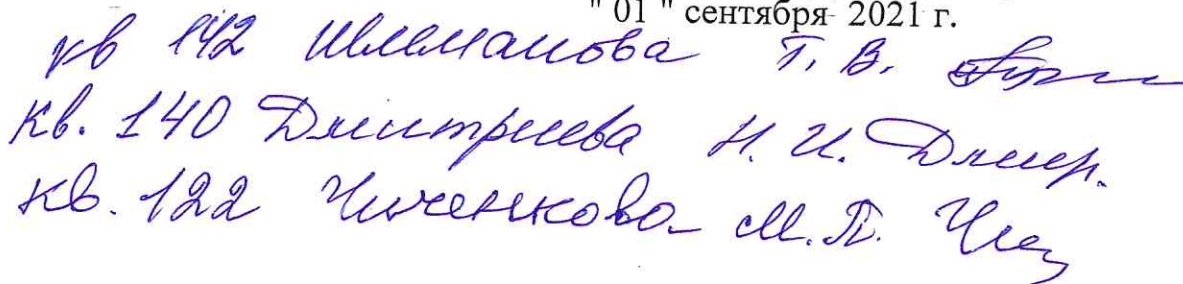 " 01 " сентября 2021 г.
кв 142 Шлеманова Т. В.
кв. 140 Дмитриева Н. И. Дмитр.
кв. 122 Чиченкова М. П.